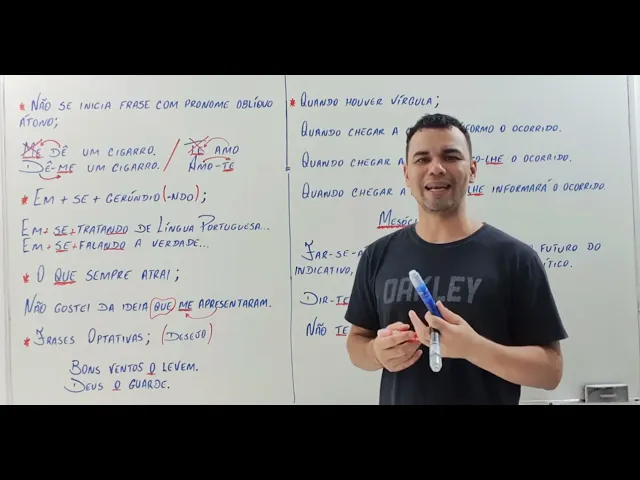 * NÃO SE INICIA FRASE COM PRONOME OBLÍQUO
ÁTONO;
ME DÊ UM CIGARRO. / TE AMO
DÊ-ME UM CIGARRO. AMO-TE
* EM + SE + GERÚNDIO (-NDO);
EM + SE + TRATANDO DE LÍNGUA PORTUGUESA...
EM + SE + FALANDO A VERDADE...
* O QUE SEMPRE ATRAI;
NÃO GOSTEI DA IDEIA QUE ME APRESENTARAM.
* FRASES OPTATIVAS; (DESEJO)
BONS VENTOS O LEVEM.
DEUS O GUARDE.
* QUANDO HOUVER VÍRGULA;
QUANDO CHEGAR A O OCORRIDO.
QUANDO CHEGAR A -LHE O OCORRIDO.
QUANDO CHEGAR A LHE INFORMARÁ O OCORRIDO
FAR-SE-Á FUTURO DO
INDICATIVO,
DIR-TE
NÃO TE
OAKLEY